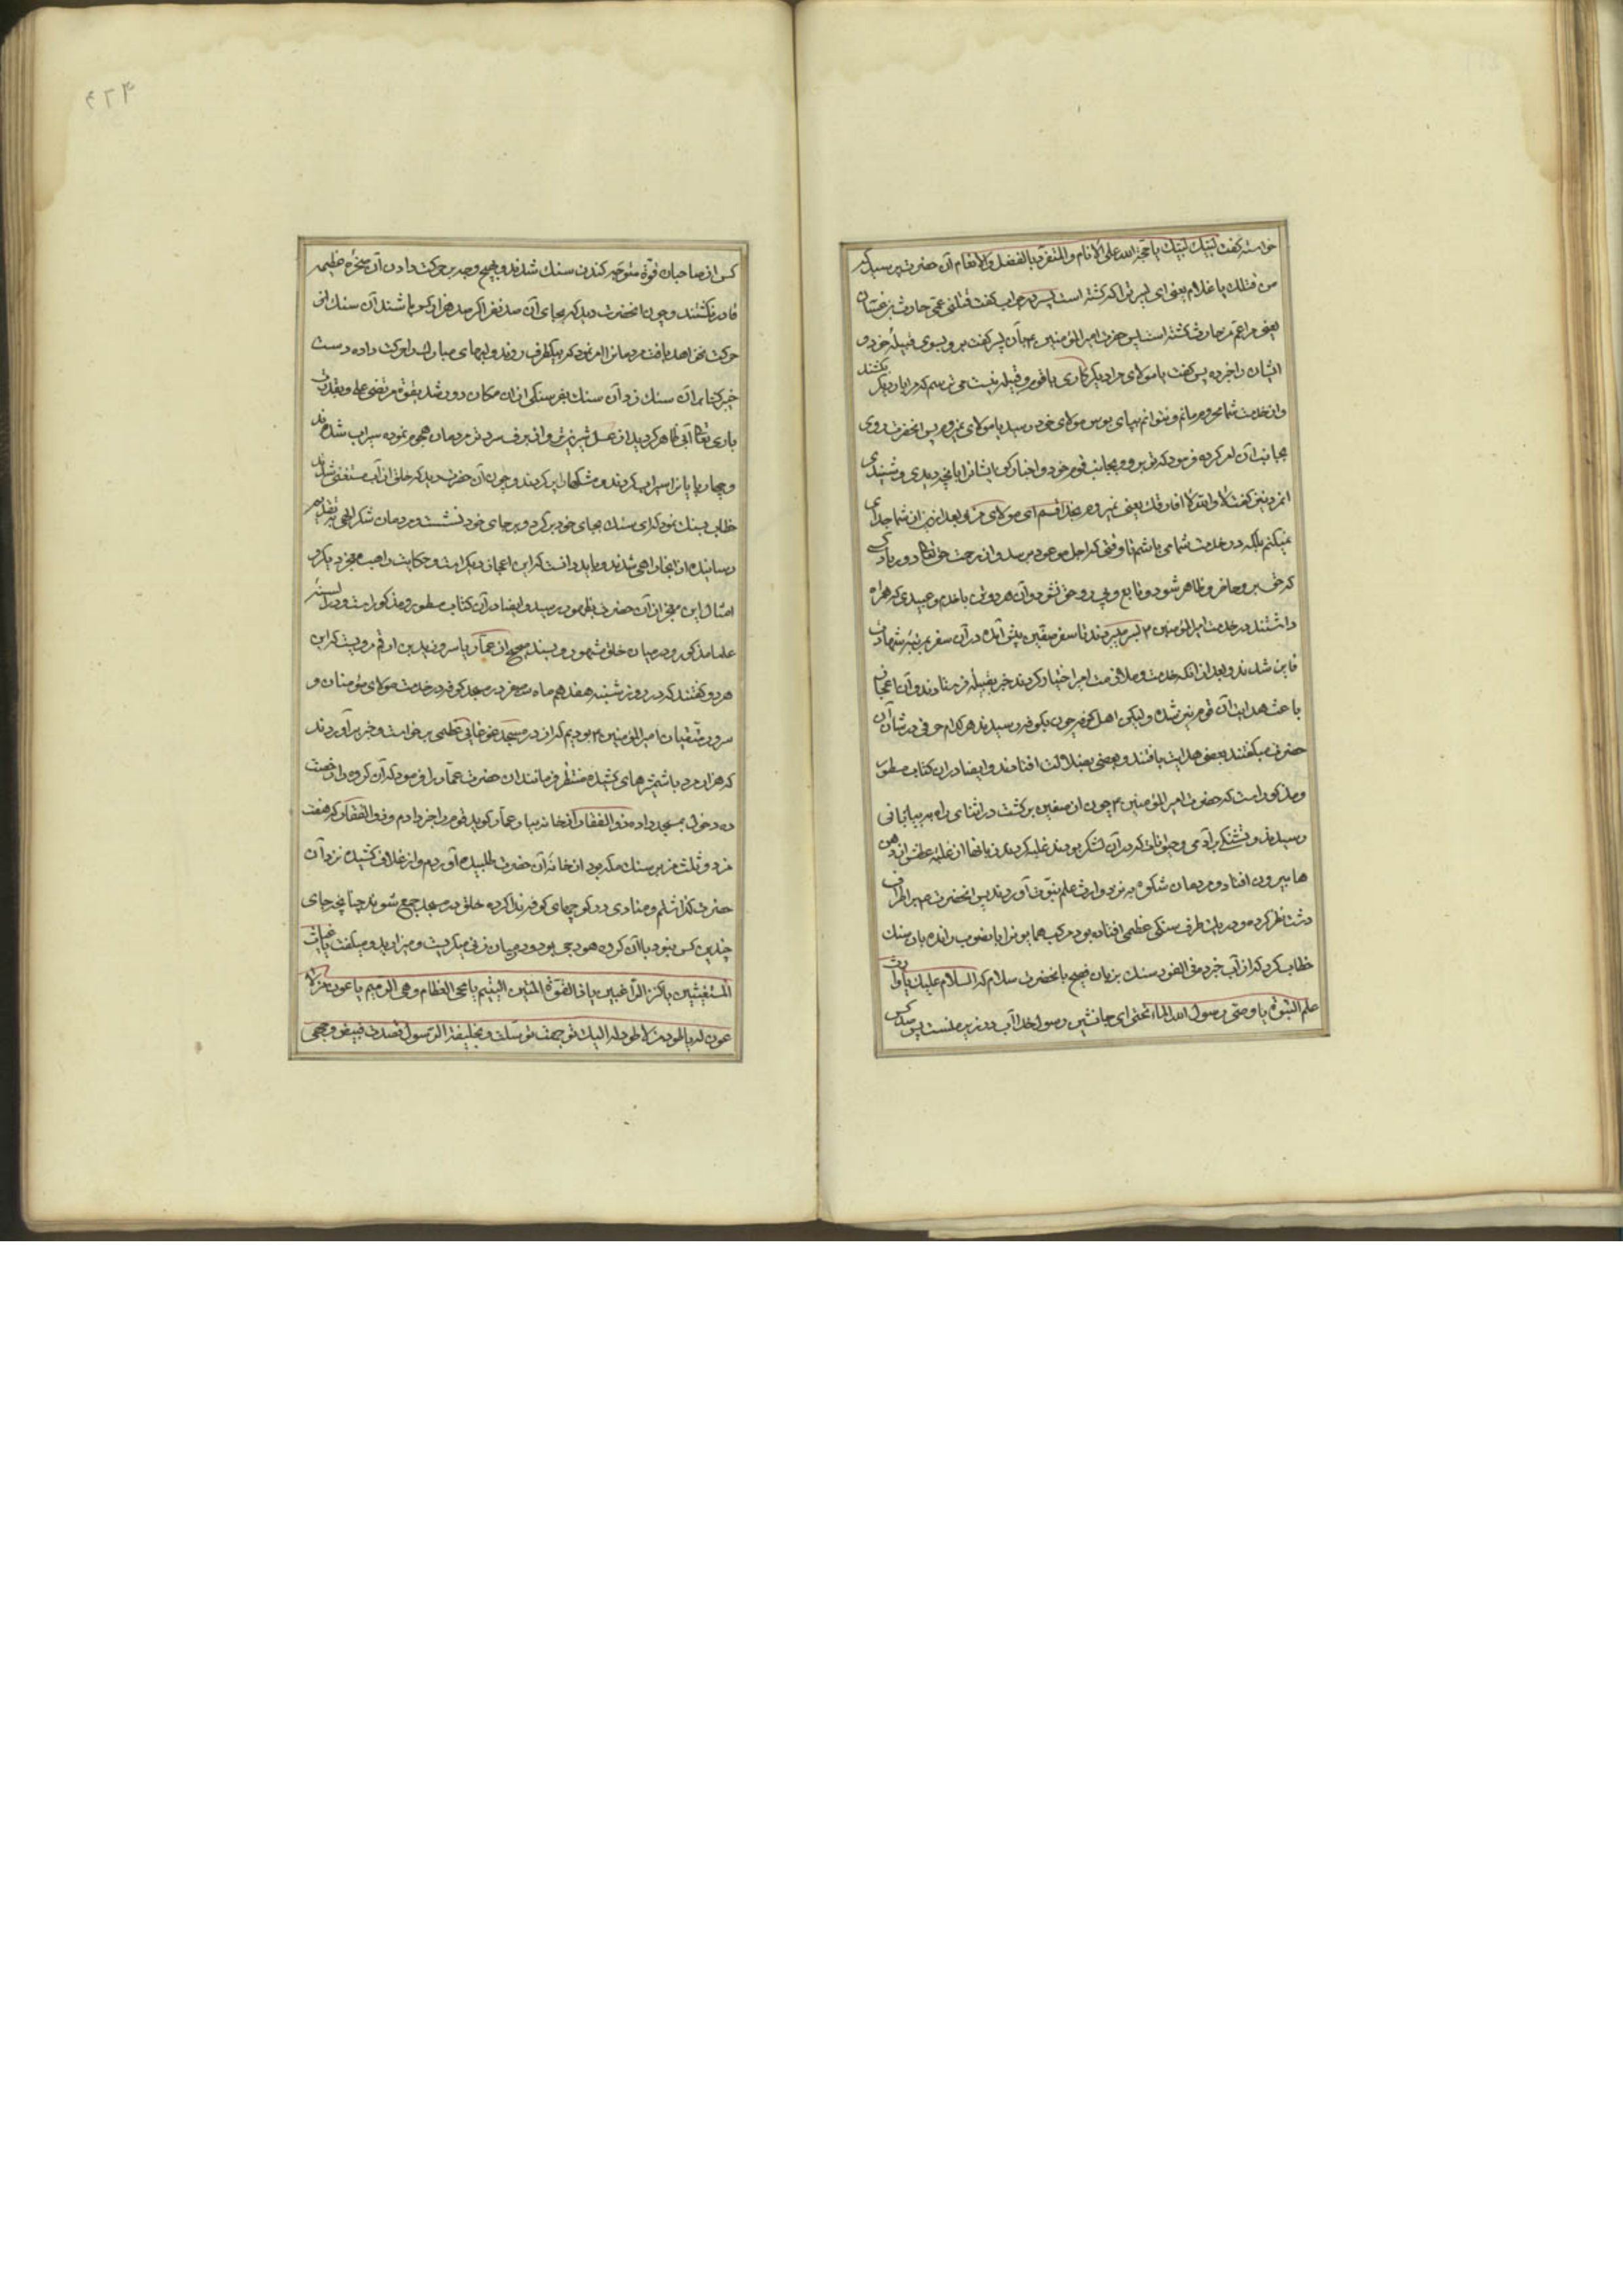 خواسته گفت لبیك لبیك یا حجة الله علی الانام والمتفرد بالفضل والانعام آن حضرت پرسید که
من قتلك یا غلام یعنی ای پسر ترا که کشته است پسر در جواب گفت قتلنی عمی حارث بن غسان
یعنی مرا عم من حارث کشته است پس حضرت امیر المؤمنین ۴ بآن پسر گفت برو بسوی قبیلهٔ خود و
ایشان را خبر ده پس گفت یا مولای مرا دیگر کاری با قوم و قبیله نیست می ترسم که مرا بار دیگر بکشند
و از خدمت شما محروم مانم و نتوانم بپای بوس مولای خود رسید یا مولای نمیروم پس انحضرت روی
بجانب آن کرده فرمود که تو برو و بجانب قوم خود و اخبار کن ایشانرا بانچه دیدی و شنیدی
نیز گفت لا والله لا افارقك یعنی نمیروم بخدا قسم ای مولای من و بعد ازین از شما جدای
نمیکنم بلکه در خدمت شما می باشم تا وقتی که اجل موعود برسد و از رحمت حق تعالی دور باد کسی
که حق برو ظاهر شود و تابع و پی رو حق نشود و آن هر دو تن با خدم و عبیدی که همراه
داشتند در خدمت امیر المؤمنین ۴ بسر میبردند تا سفر صفین پیش آمد در آن سفر بمرتبه شهادت
فایز شدند و بعد از انکه خدمت و ملازمت امیر اختیار کردند خبر بقبیله فرستادند و آن اعجاز
باعث هدایت آن قوم نیز شد و لیکن اهل کوفه چون بکوفه رسیدند هر کدام حرفی در شان آن
حضرت میگفتند بعضی هدایت یافتند و بعضی بضلالت افتادند و ایضا در ان کتاب مسطور
و مذکور است که حضرت امیر المؤمنین ۴ چون از صفین برگشت در اثنای راه به بیابانی
رسیدند و تشنگی بر آدمی و حیوانات که در آن لشکر بودند غلبه کرد و زبانها از غلبهٔ عطش از دهن
ها بیرون افتاد و مردمان شکوه به نزد وارث علم نبوت آوردند پس انحضرت ۴ بر اطراف
دشت نظر کرده و در یك طرف سنکی عظیمی افتاده بود مرکب همایون را بانصوب رانده بان سنك
خطاب کرد که از آب خبر ده فی الفور سنك بزبان فصیح بانحضرت سلام که السلام علیك یا وارث
علم النبوة یا وصی رسول الله الماء تحتی ای جانشین رسول خدا آب در زیر منست پس صد کس
کس از صاحبان قوة متوجه کندن سنك شدند و بهیچ وجه بر حرکت دادن آن صخرهٔ عظیمه
قادر نکشتند و چون انحضرت دید که بجای آن صد نفر اگر صد هزار کس باشند آن سنك از
حرکت نخواهد یافت مردمانرا امر نمود که بیکطرف روند و لبهای مبارك را حرکت داده دست
خیبر کنا بر آن سنك زد آن سنك بفرسنکی از ان مکان دور شد بقوة مرتضی علی و بقدرت
باری تعالی آبی ظاهر کردید از عسل شیرین تر و از برف سرد تر مردمان هجوم نموده سیراب شدند
و چهار پایانرا سیراب کردند و مشکها را پر کردند و چون آن حضرت دید که خلق از آب مستغنی شدند
خطاب بسنك نمود که ای سنك بجای خود بر کرد و بر جای خود نشست و مردمان شکر الهی بتقدیم
رسانیده از انجا راهی شدند و باید دانست که این اعجاز دیکر است و حکایت راهب معجز دیکر و
امثال این معجز از آن حضرت بظهور میرسید و ایضا در آن کتاب مسطور و مذکور است و در السنهٔ
علما مذکور و در میان خلق مشهور و بسند صحیح از عمار یاسر و زید بن ارقم مرویست که این
هر دو گفتند که در روز شنبه هفدهم ماه صفر در مسجد کوفه در خدمت مولای مؤمنان و
سرور متقیان امیر المؤمنین ۴ بودیم که از در مسجد غوغایی عظیمی برخواست و خبر آوردند
که هزار مرد با شمشیرهای کشیده منتظر فرمانند ان حضرت عمار را فرمود که آن گروه را رخصت
ده دخول بمسجد داده ذو الفقار از خانه بیار عمار گوید قوم را خبر دادم و ذو الفقار که هفت
من و ثلث من بسنك مکه بود از خانهٔ آن حضرت طلبیده آوردم و از غلاف کشیده نزد آن
حضرت گذاشتم و منادی در کوچهای کوفه ندا کرده خلق در مسجد جمع شوند چنانچه جای
چندین کس نبود با آن گروه هودجی بود و در میان زنی میگریست و میزارید و میگفت یا غیاث
المستغیثین یا کنز الراغبین یا ذا القوة المتین الیتیم یا محی العظام و هی الرمیم یا عون من لا
عون له یا طود من لا طود له الیك توجهت و بك توسلت و بخلیفة الرسول قصدت فبیض وجهی